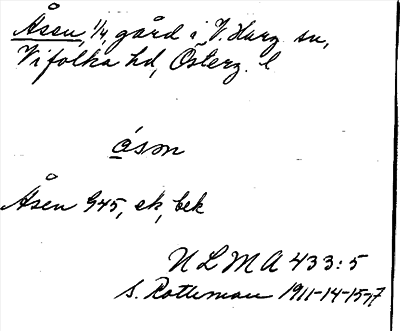 Åsen, 1/4 gård i V. Harg sn,
Vifolka hd, Österg. l
åsm
Åsen 945, ek, bek
NLMA 433:5
S. Rothman 1911-14-15-17